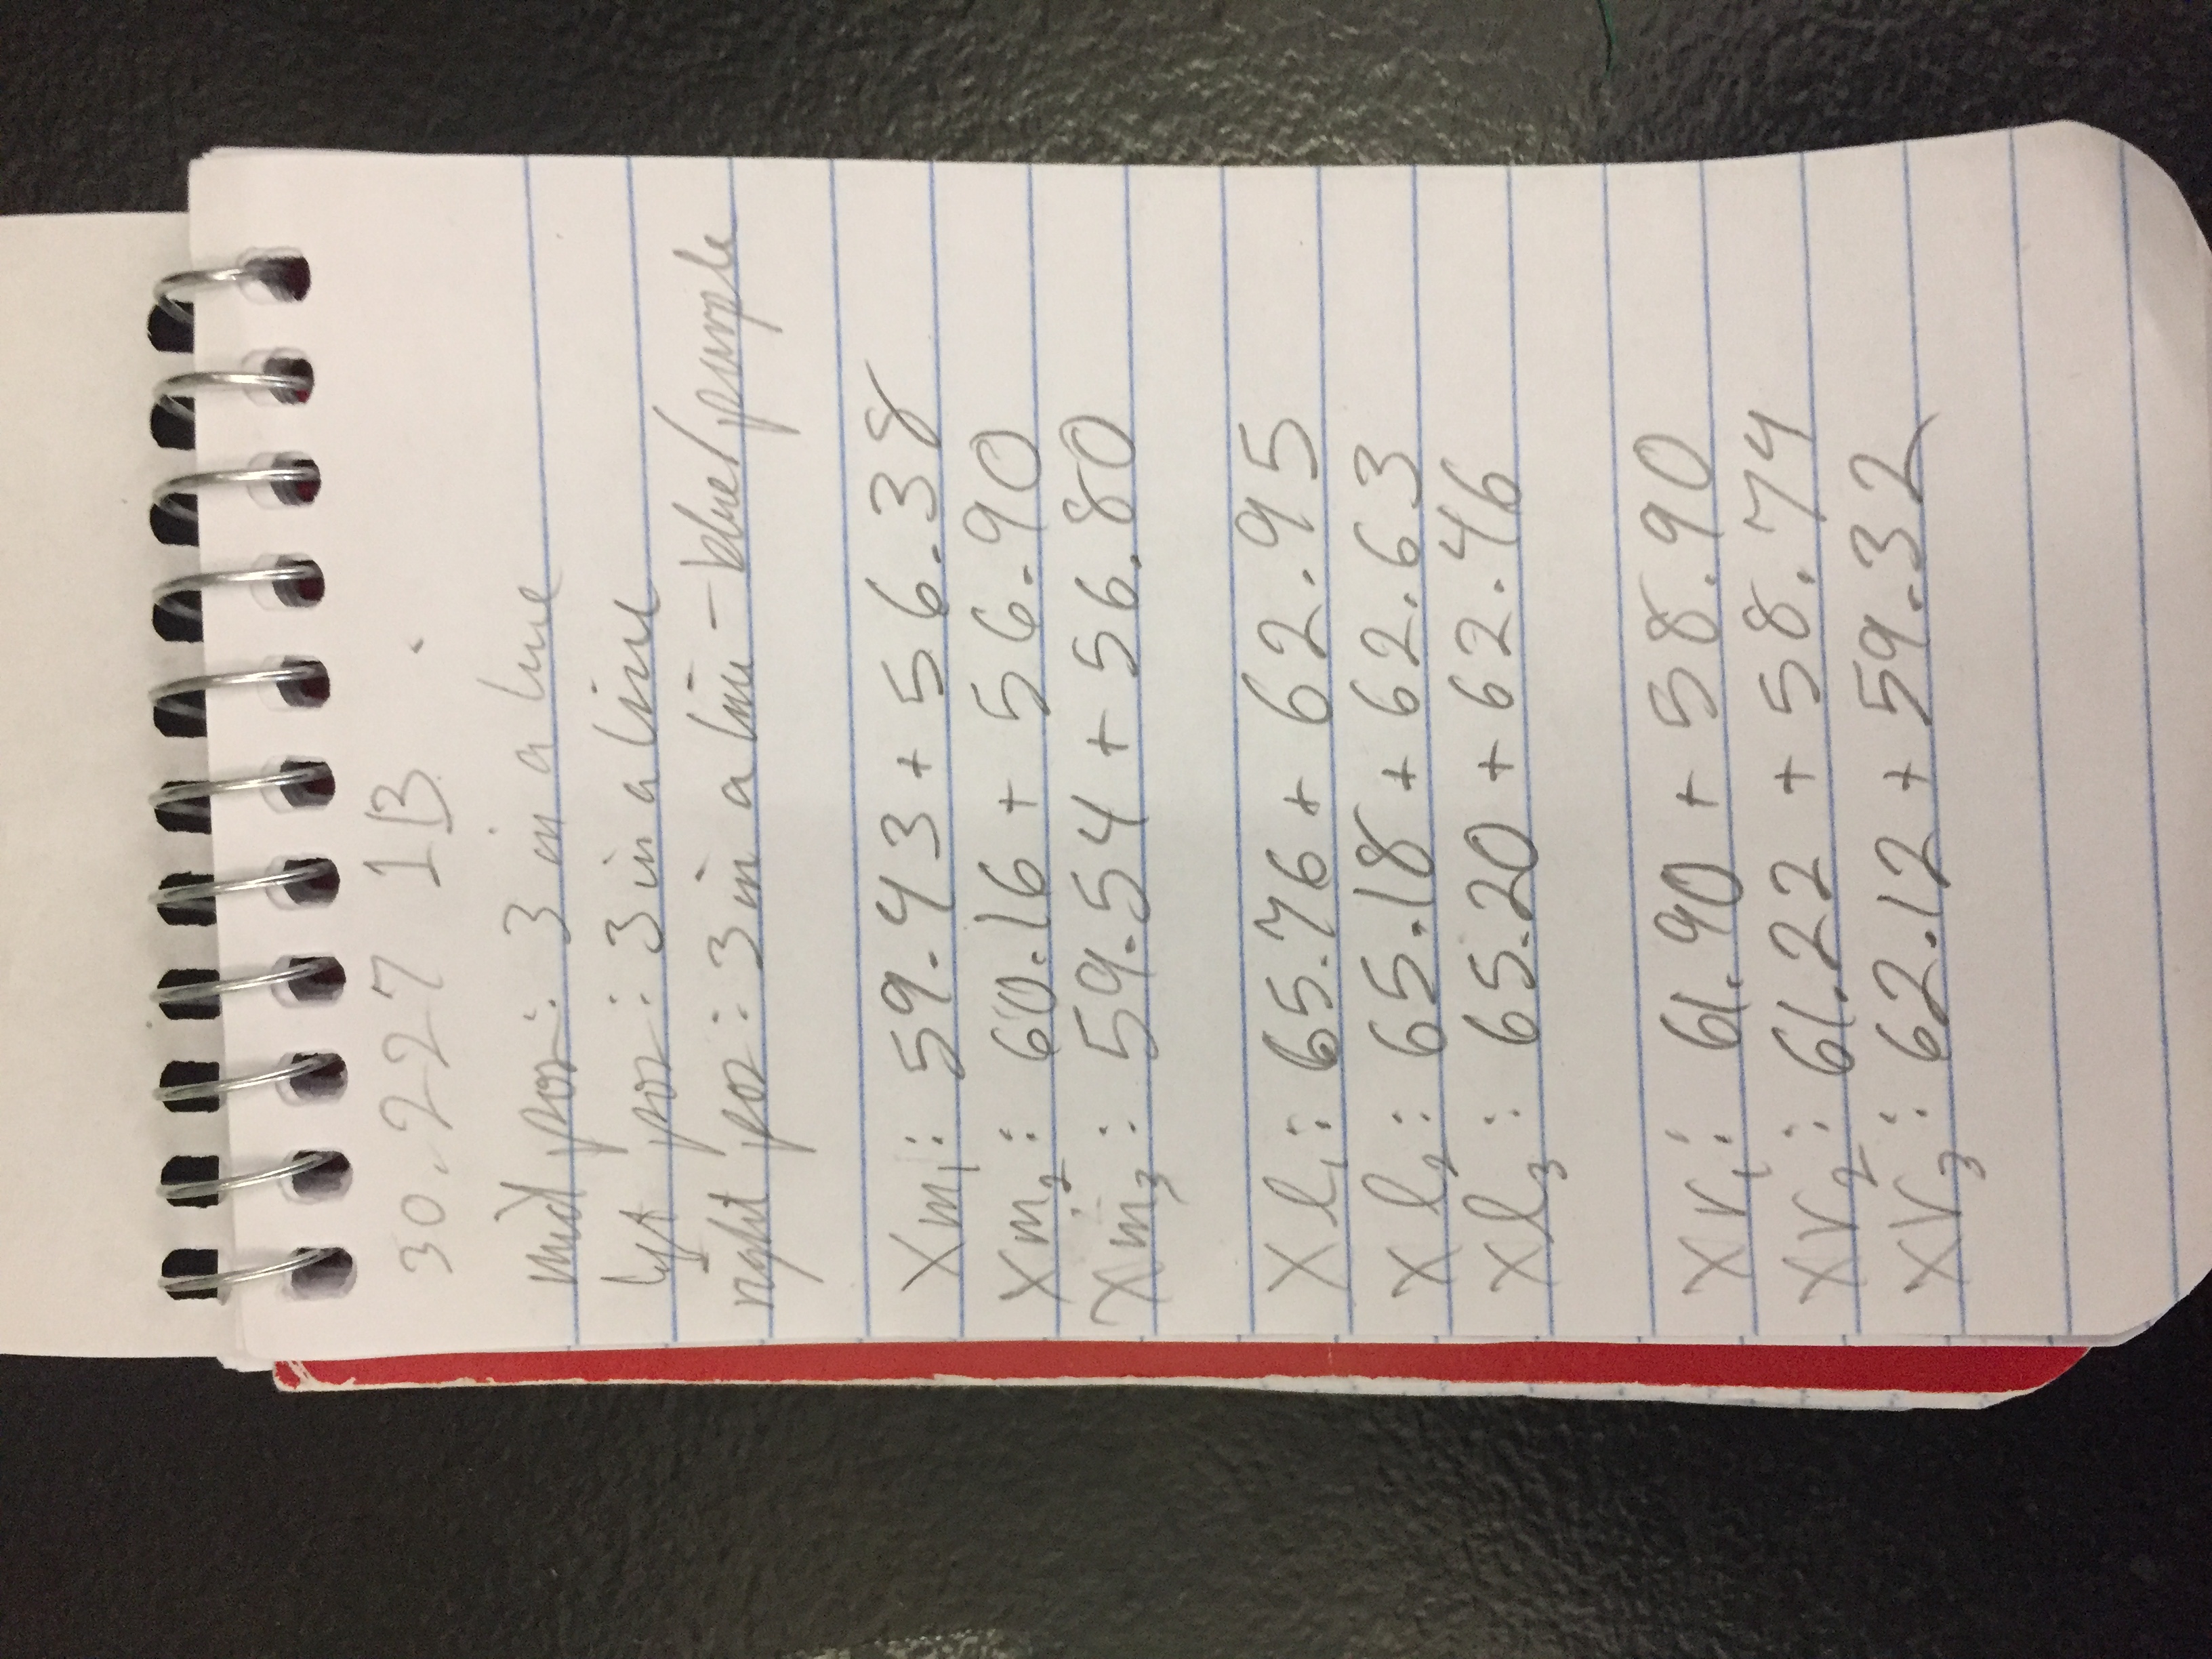 30.227 1B
mid pos: 3 in a line
left pos: 3 in a line
right pos: 3 in a line - blue/purple
Xm1: 59.43 + 56.38
Xm2: 60.16 + 56.90
Xm3: 59.54 + 56.80
Xl1: 65.76 + 62.95
Xl2: 65.18 + 62.63
Xl3: 65.20 + 62.46
Xr1: 61.90 + 58.90
Xr2: 61.22 + 58.74
Xr3: 62.12 + 59.32